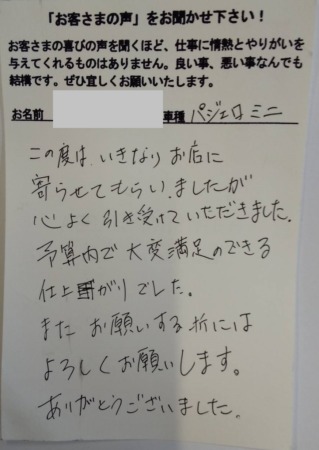 「お客さまの声」をお聞かせ下さい!
お客さまの喜びの声を聞くほど、仕事に情熱とやりがいを
与えてくれるものはありません。良い事、悪い事なんでも
結構です。ぜひ宜しくお願いいたします。
お名前 車種 パジェロミニ
この度は、いきなりお店に
寄らせてもらいましたが
心よく引き受けていただきました。
予算内で大変満足のできる
仕上がりでした。
またお願いする折には
よろしくお願いします。
ありがとうございました。